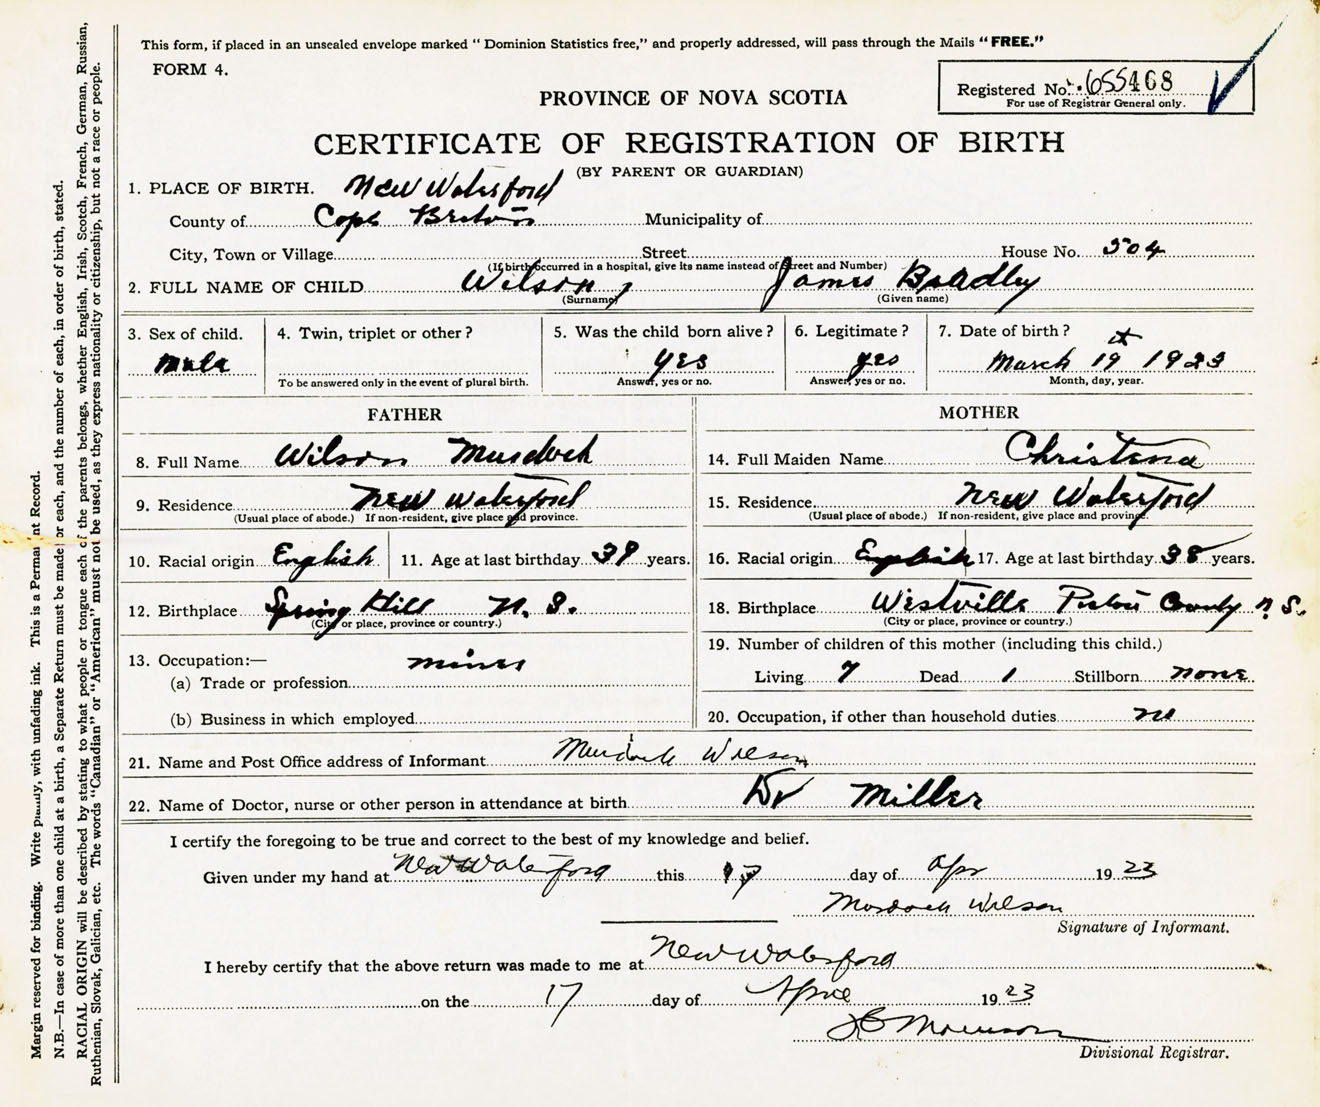 This form, if placed in an unsealed envelope marked "Dominion Statistics free," and properly addressed, will pass through the Mails "FREE."
FORM 4.
Registered No. 655468
For use of Registrar General only.
PROVINCE OF NOVA SCOTIA
CERTIFICATE OF REGISTRATION OF BIRTH
(BY PARENT OR GUARDIAN)
1. PLACE OF BIRTH. New Waterford
County of Cape Breton Municipality of
City, Town or Village Street House No. 504
(If birth occurred in a hospital, give its name instead of Street and Number)
2. FULL NAME OF CHILD Wilson, James Bradley
(Surname) (Given name)
3. Sex of child. 4. Twin, triplet or other? 5. Was the child born alive? 6. Legitimate? 7. Date of birth?
Male yes yes March 19th 1923
To be answered only in the event of plural birth. Answer, yes or no. Answer, yes or no. Month, day, year.
FATHER MOTHER
8. Full Name Wilson Murdoch 14. Full Maiden Name Christena
9. Residence New Waterford 15. Residence New Waterford
(Usual place of abode.) If non-resident, give place and province. (Usual place of abode.) If non-resident, give place and province.
10. Racial origin English 11. Age at last birthday 39 years. 16. Racial origin English 17. Age at last birthday 38 years.
12. Birthplace Spring Hill N. S. 18. Birthplace Westville Pictou County N.S.
(City or place, province or country.) (City or place, province or country.)
19. Number of children of this mother (including this child.)
13. Occupation:— miner
(a) Trade or profession Living 7 Dead 1 Stillborn none
(b) Business in which employed 20. Occupation, if other than household duties
21. Name and Post Office address of Informant Murdock Wilson
22. Name of Doctor, nurse or other person in attendance at birth Dr Miller
I certify the foregoing to be true and correct to the best of my knowledge and belief.
Given under my hand at New Waterford this 17 day of Apr 1923
Murdock Wilson
Signature of Informant.
I hereby certify that the above return was made to me at New Waterford
on the 17 day of April 1923
Morrison
Divisional Registrar.
Margin reserved for binding. Write plainly, with unfading ink. This is a Permanent Record.
N.B.—In case of more than one child at a birth, a Separate Return must be made for each, and the number of each, in order of birth, stated.
RACIAL ORIGIN will be described by stating to what people or tongue each of the parents belongs, whether English, Irish, Scotch, French, German, Russian,
Ruthenian, Slovak, Galician, etc. The words "Canadian" or "American" must not be used, as they express nationality or citizenship, but not a race or people.